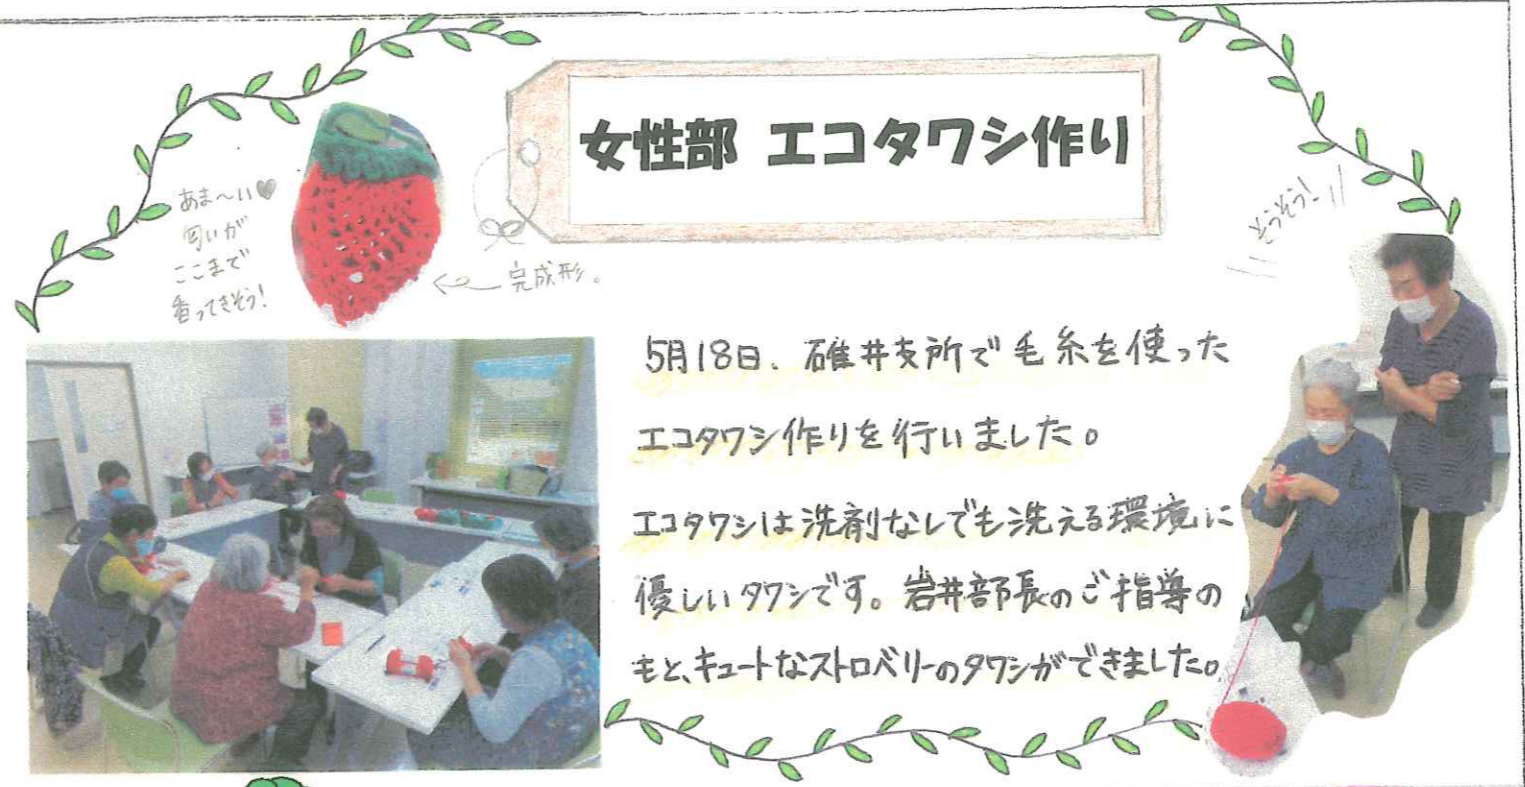 女性部 エコタワシ作り
あま～い♥
匂いが
ここまで
香ってきそう!
完成形。
そうそう!
5月18日、碓井支所で毛糸を使った
エコタワシ作りを行いました。
エコタワシは洗剤なしでも洗える環境に
優しいタワシです。岩井部長のご指導の
もと、キュートなストロベリーのタワシができました。